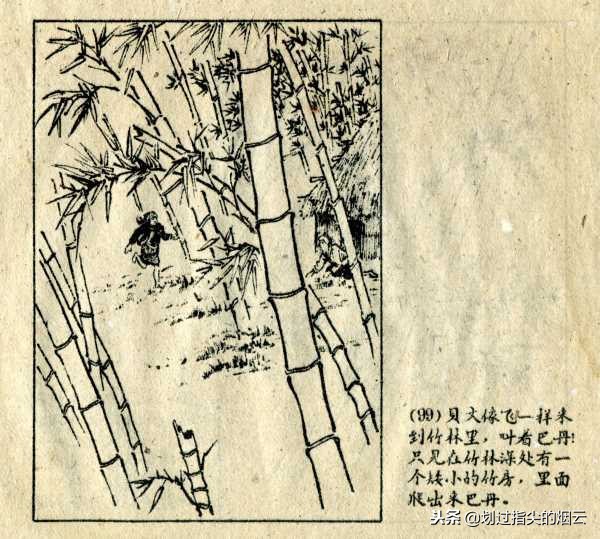 (99)贝大像飞一样来
到竹林里，叫着巴丹!
只见在竹林深处有一
个矮小的竹房，里面
爬出来巴丹。
头条 @划过指尖的烟云